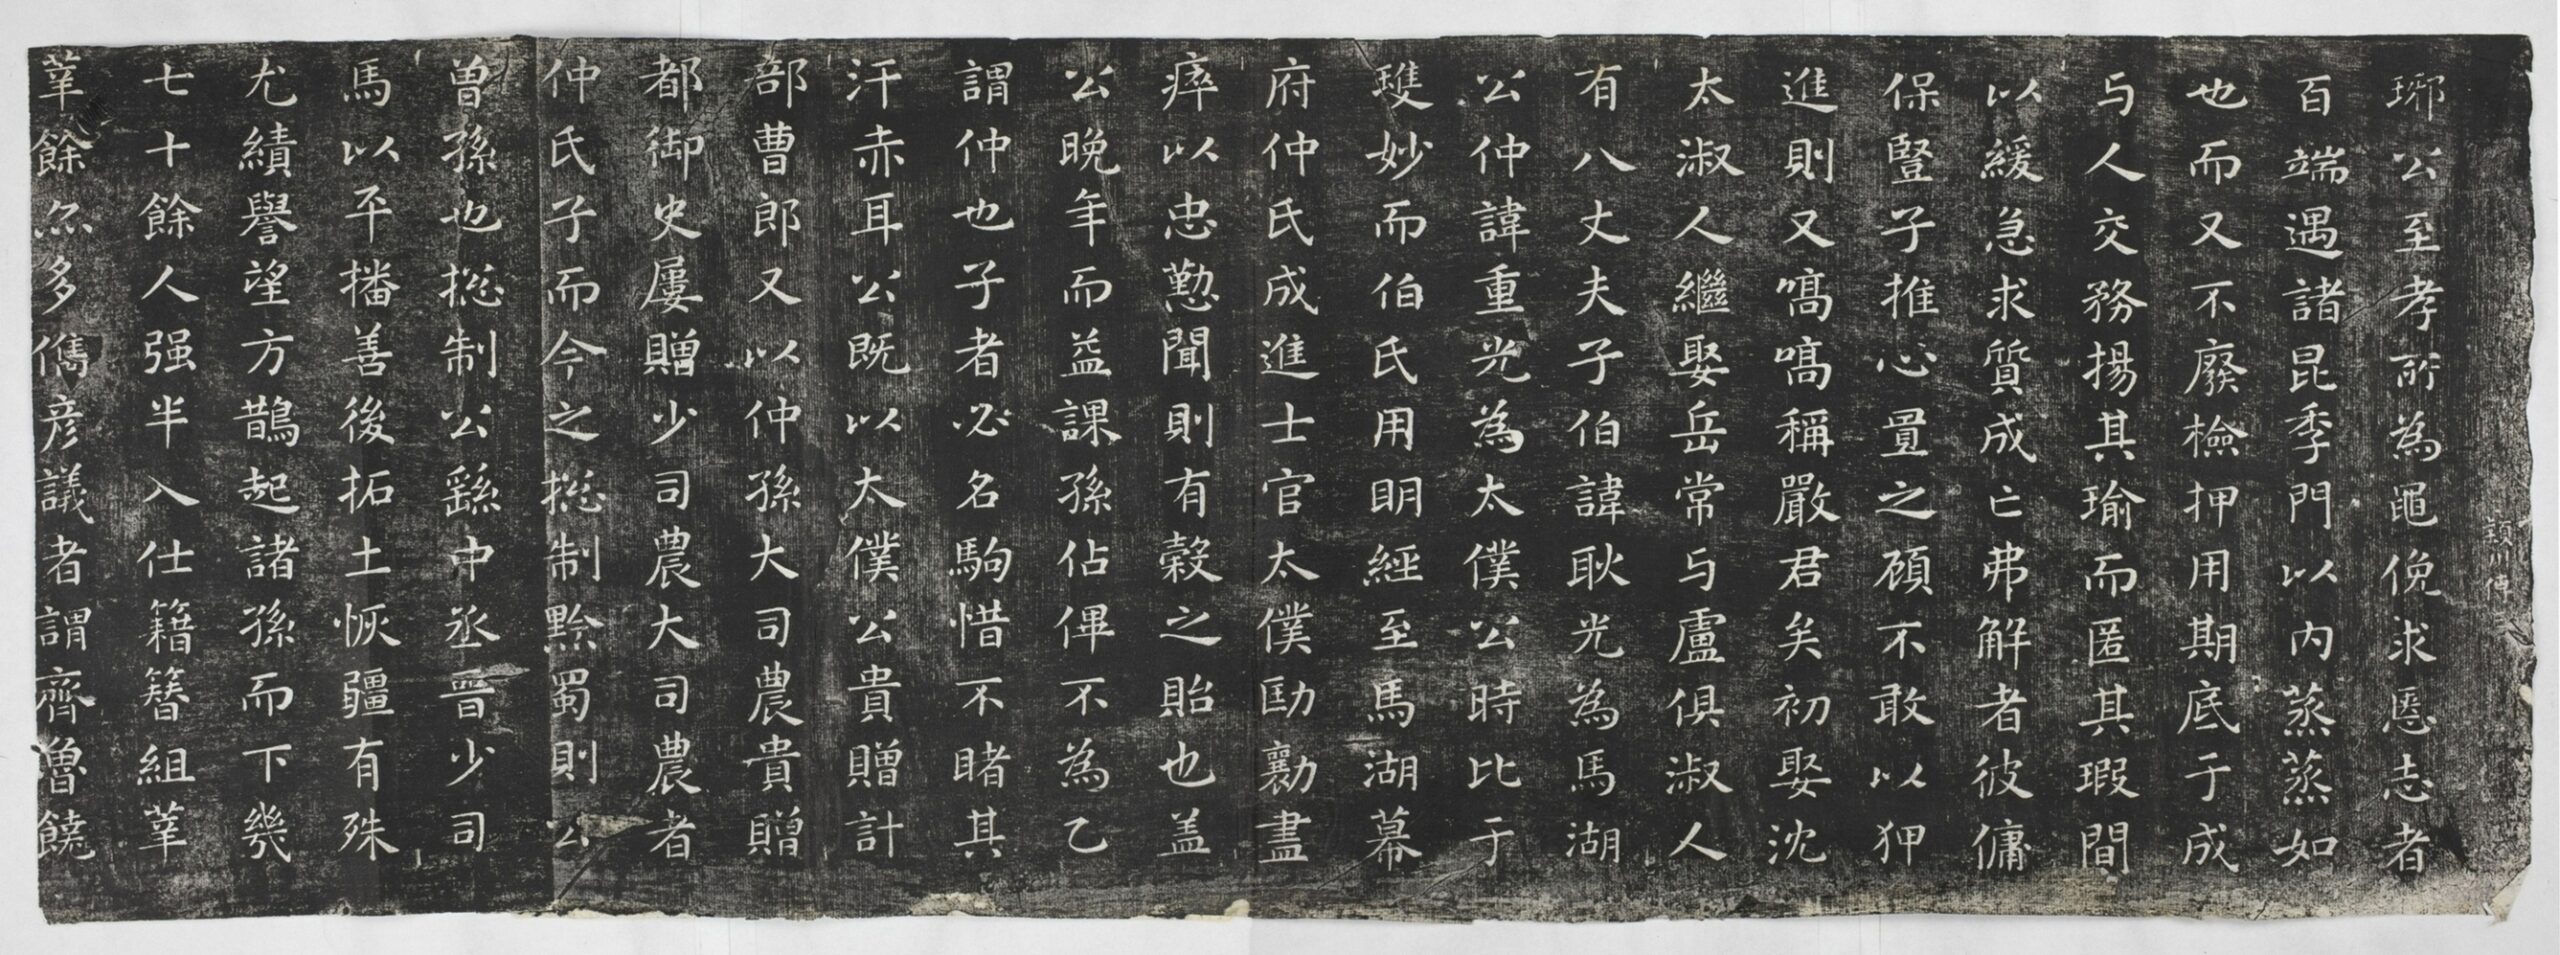 瑯公至孝所為黽俛求慝志者
百端遇諸昆季門以内蒸蒸如
也而又不廢檢押用期底于成
与人交務揚其瑜而匿其瑕間
以緩急求質成亡弗解者彼傭
保豎子推心置之顔不敢以狎
進則又嗃嗃稱嚴君矣初娶沈
太淑人繼娶岳常与盧俱淑人
有八丈夫子伯諱耿光為馬湖
公仲諱重光為太僕公時比于
雙妙而伯氏用明經至馬湖幕
府仲氏成進士官太僕劻勷盡
瘁以忠懃聞則有穀之貽也盖
公晩年而益課孫佔俾不為乙
謂仲也子者必名駒惜不睹其
汗赤耳公既以太僕公貴贈計
部曹郎又以仲孫大司農貴贈
都御史屢贈少司農大司農者
仲氏子而今之揔制黔蜀則公
曾孫也揔制公繇中丞晉少司
馬以平播善後拓土恢疆有殊
尤績譽望方鵲起諸孫而下幾
七十餘人强半入仕籍簪組莘
莘餘尒多儁彦議者謂齊魯饒